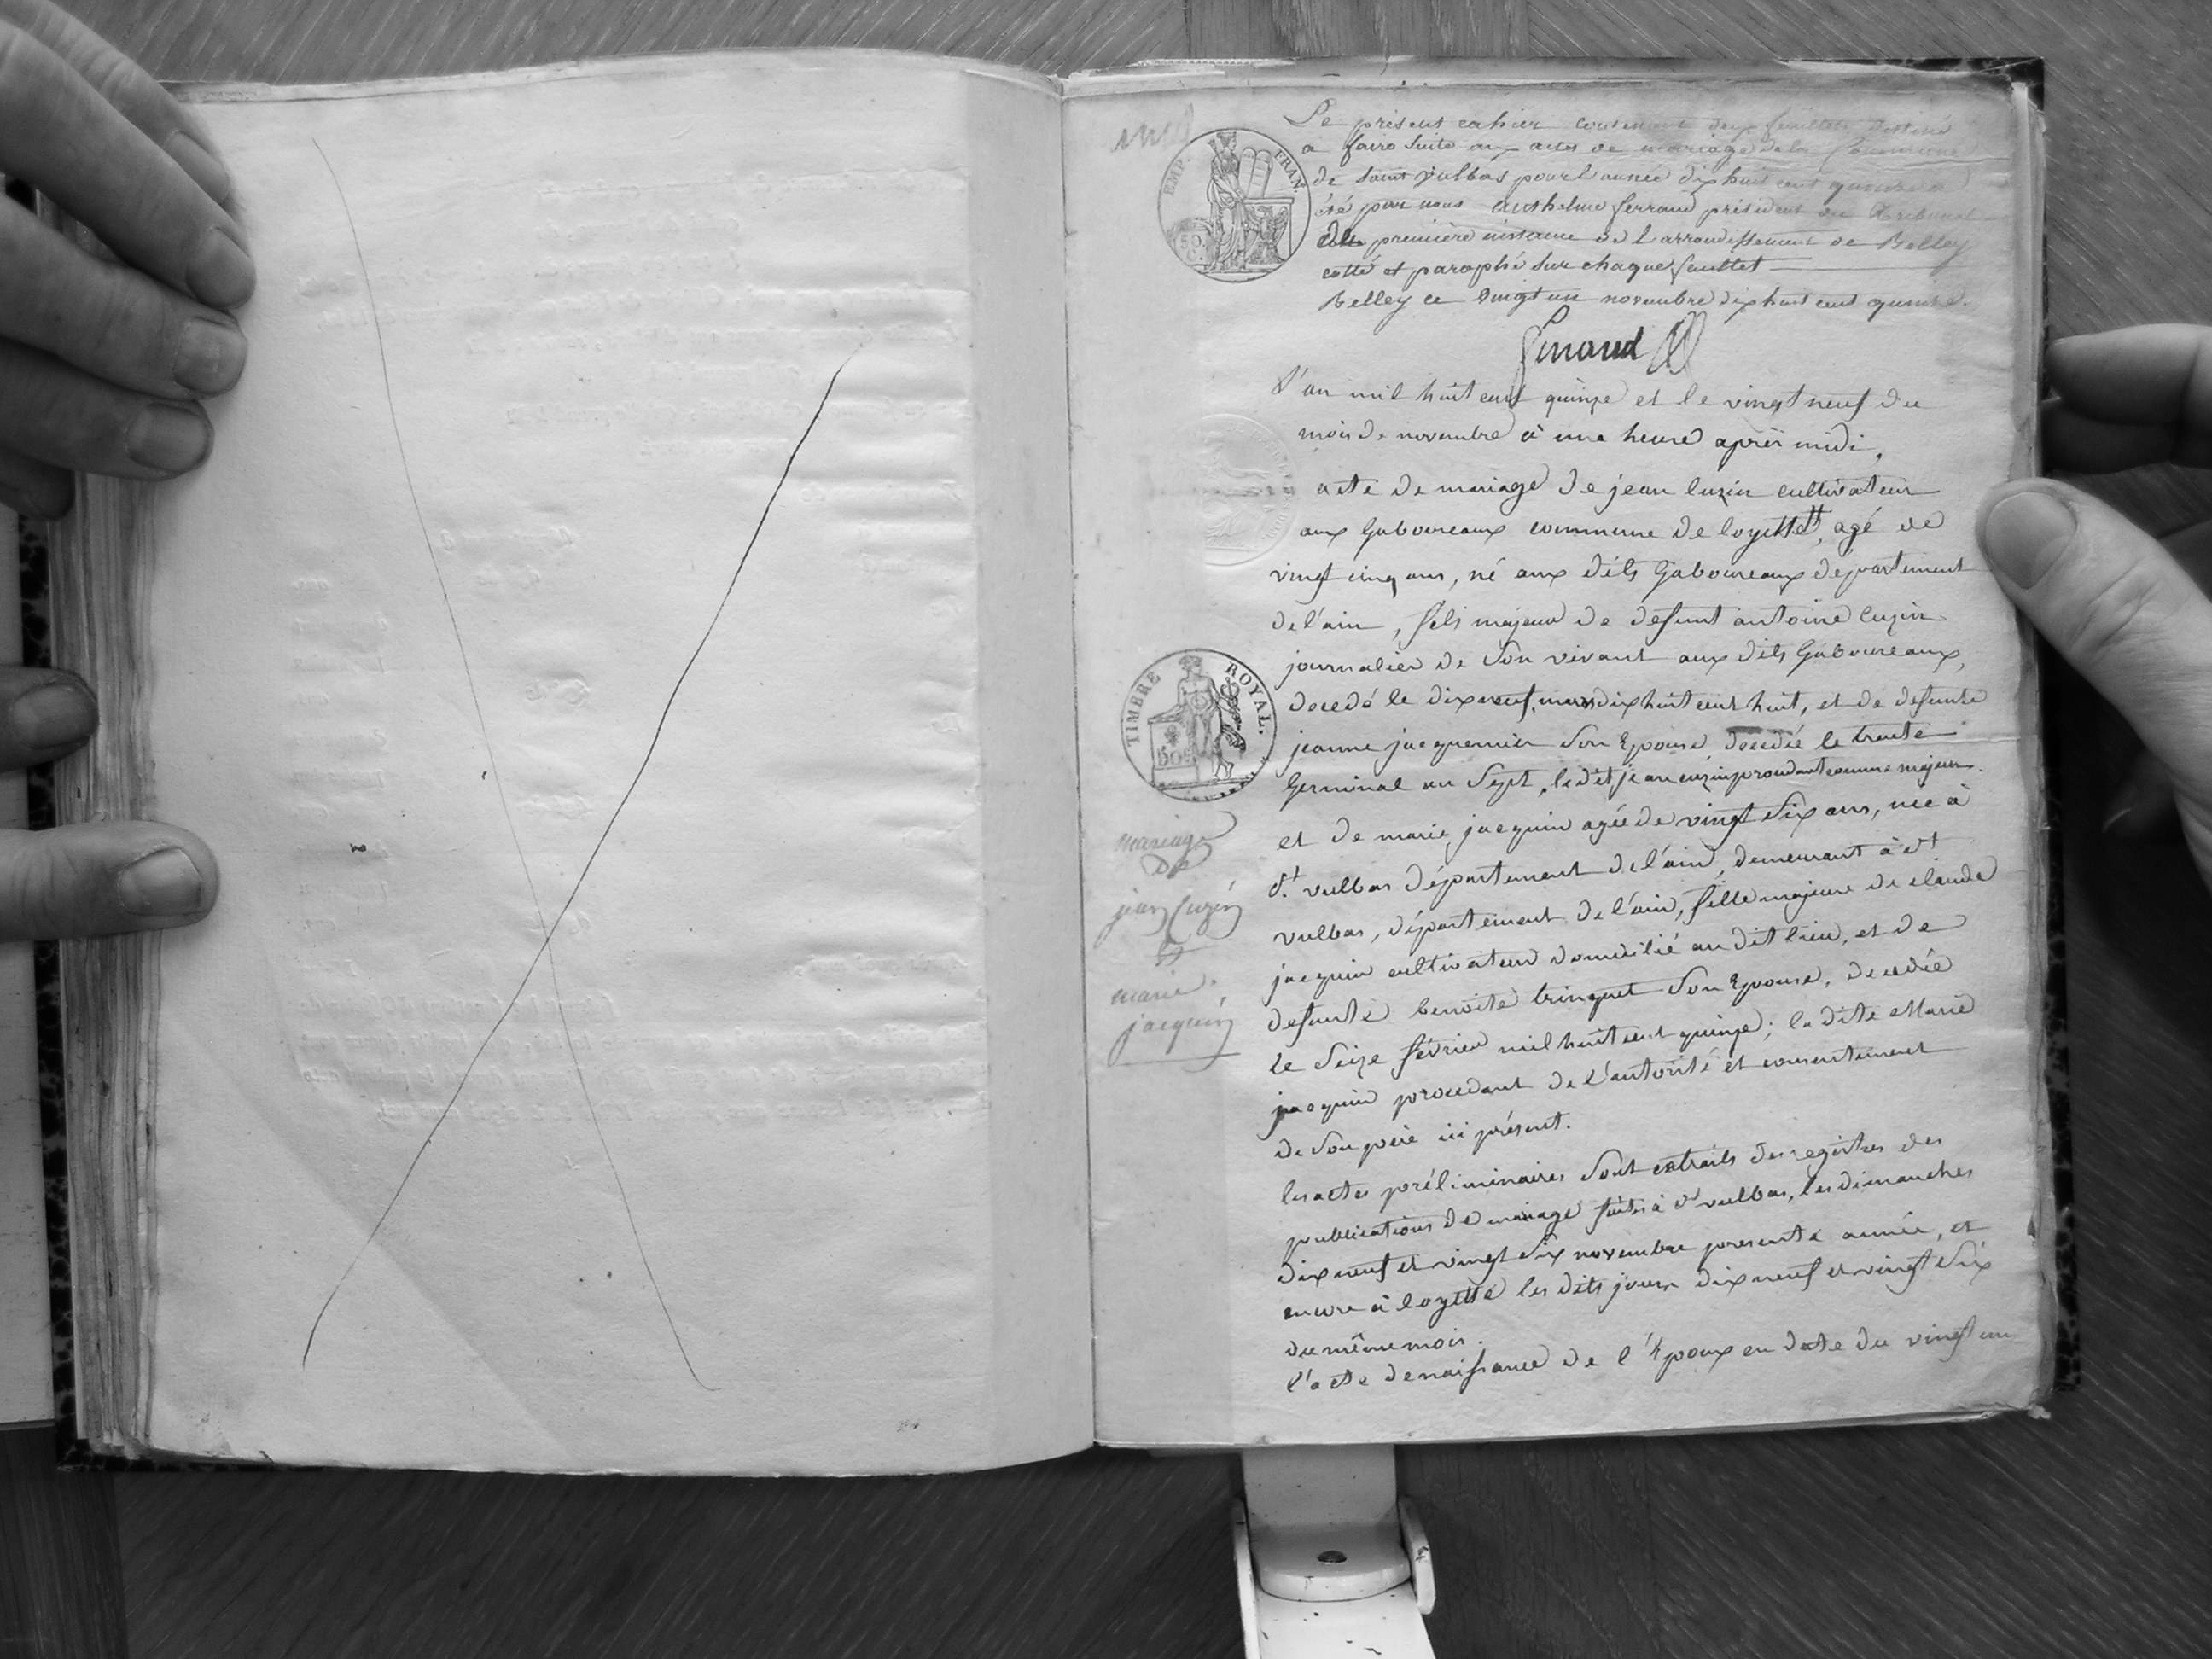 Le présent cahier contenant deux feuillets destiné
a faire suite aux actes de mariage de la Commune
de Saint Vulbas pour l'année dix huit cent quinze a
été par nous Anthelme ferrand président du Tribunal
de première instance de l'arrondissement de Belley
cotté et paraphé sur chaque feuillet
Belley ce vingt un novembre dix huit cent quinze.
EMP. FRAN.
50 C.
L'an mil huit cent quinze et le vingt neuf du
mois de novembre à une heure après midi,
acte de mariage de jean Cuzin cultivateur
aux Gaboureaux commune de loyette, agé de
vingt cinq ans, né aux dits Gaboureaux département
de l'ain, fils majeur de defunt antoine Cuzin
journalier de son vivant aux dits Gaboureaux,
decedé le dix neuf mars dix huit cent huit, et de defunte
jeanne jacquemier son Epouse decedée le trente
Germinal an sept, le dit jean cuzin procedant comme majeur.
et de marie jacquin agée de vingt six ans, née à
St. vulbas département de l'ain, demeurant à st
vulbas, département de l'ain, fille majeure de claude
jacquin cultivateur domicilié au dit lieu, et de
defunte benoite tringuet son Epouse, decedée
le seize février mil huit cent quinze; la dite Marie
jacquin procedant de l'autorité et consentement
de son père ici présent.
les actes préliminaires sont extraits des registres des
publications de mariage faites à st vulbas, les dimanches
dix neuf et vingt six novembre presente année, et
encore à loyette les dits jours dix neuf et vingt six
du même mois.
l'acte de naissance de l'Epoux en date du vingt un
TIMBRE ROYAL.
50c
mariage
De
jean Cuzin
et
marie
jacquin